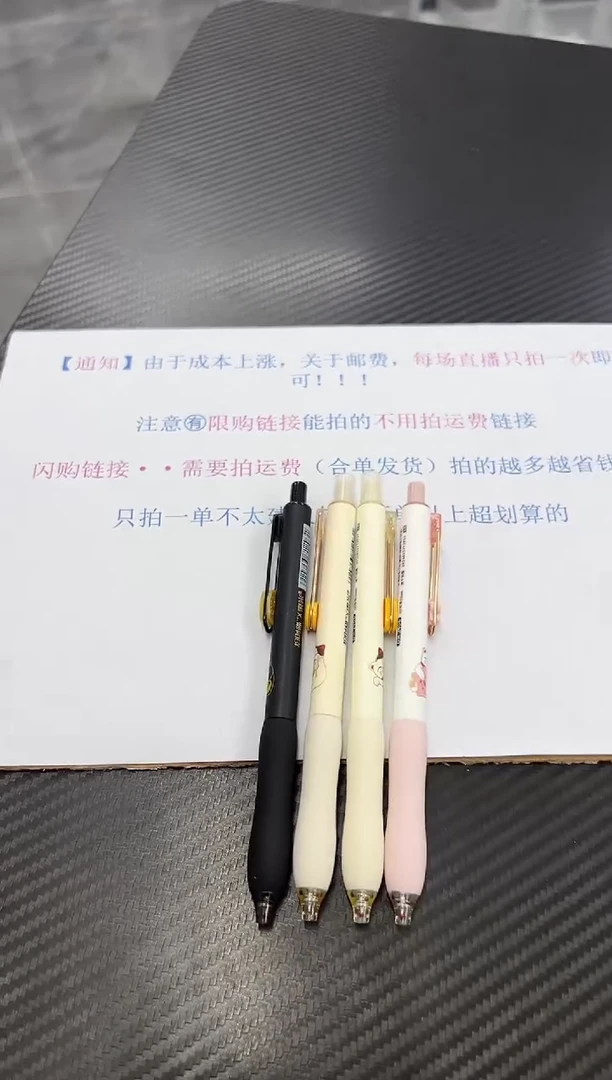 【通知】由于成本上涨，关于邮费，每场直播只拍一次即
可！！！
注意㊒限购链接能拍的不用拍运费链接
闪购链接··需要拍运费（合单发货）拍的越多越省钱
只拍一单不太 上超划算的